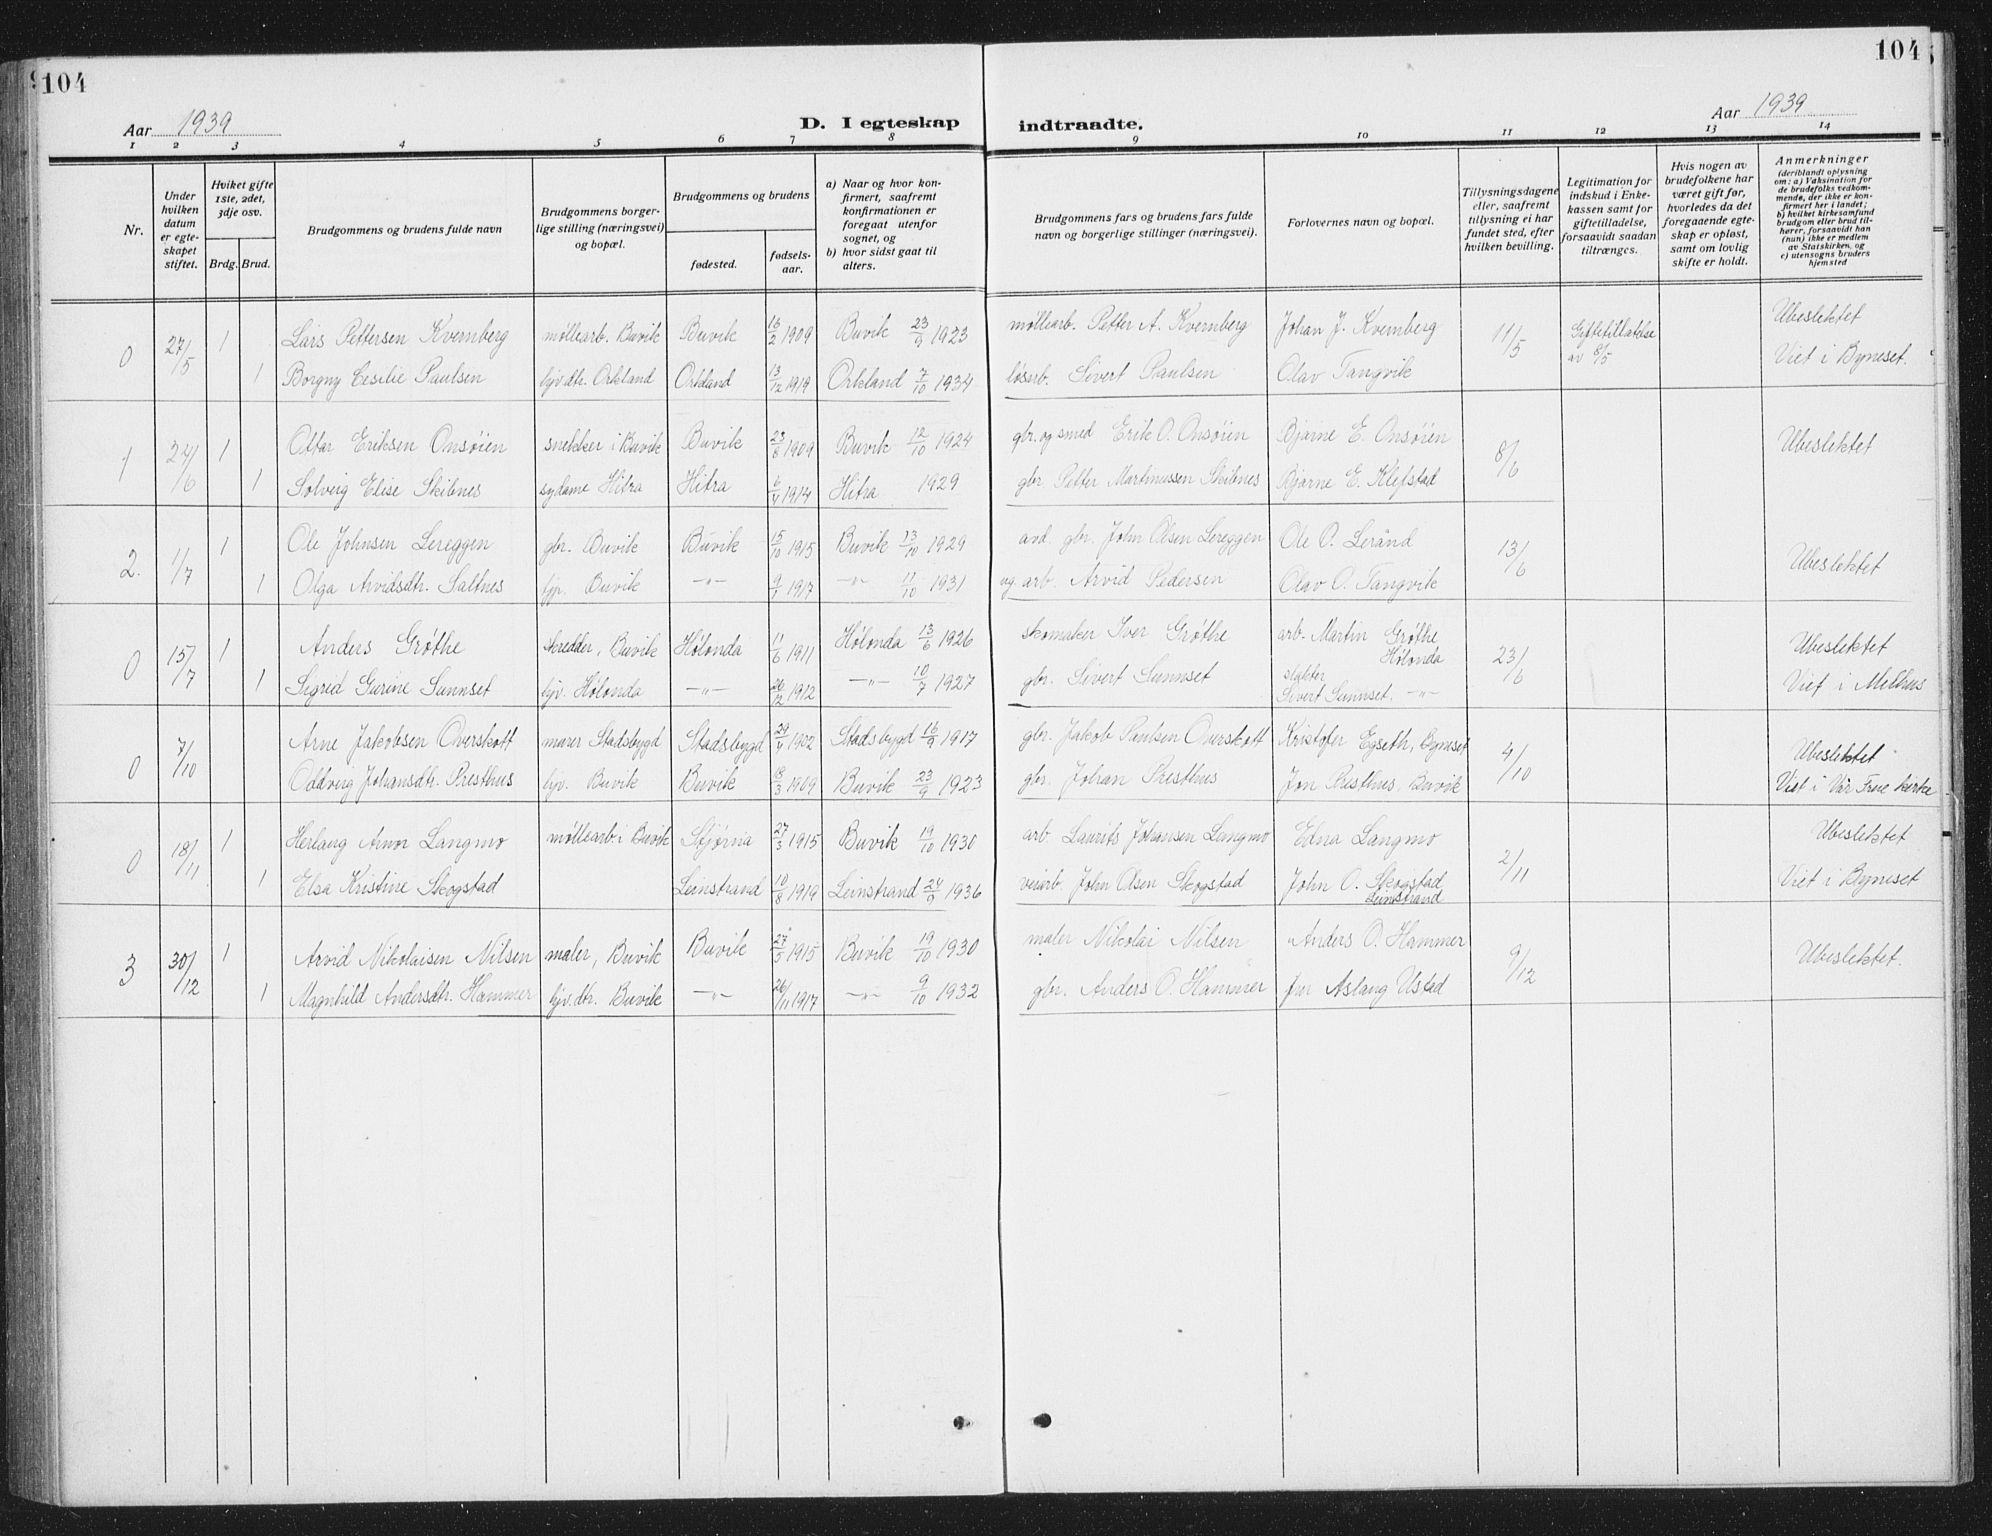 104
104
Aar 1939
D. I egteskap indtraadte.
Aar 1939
1 2 3 4 5 6 7 8 9 10 11 12 13 14
Nr.
Under hvilken datum er egte-skapet stiftet.
Hviket gifte 1ste, 2det, 3dje osv.
Brdg. Brud.
Brudgommens og brudens fulde navn
Brudgommens borger-lige stilling (næringsvei) og bopæl.
Brudgommens og brudens
fødested.
fødsels-aar.
a) Naar og hvor kon-firmert, saafremt konfirmationen er foregaat utenfor sognet, og
b) hvor sidst gaat til alters.
Brudgommens fars og brudens fars fulde navn og borgerlige stillinger (næringsvei).
Forlovernes navn og bopæl.
Tillysningsdagene eller, saafremt tillysning ei har fundet sted, efter hvilken bevilling.
Legitimation for indskud i Enke-kassen samt for giftetilladelse, forsaavidt saadan tiltrænges.
Hvis nogen av brudefolkene har været gift før, hvorledes da det foregaaende egte-skap er opløst, samt om lovlig skifte er holdt.
Anmerkninger
(deriblandt oplysning om: a) Vaksination for de brudefolks vedkom-mende, der ikke er kon-firmert her i landet; b) hvilket kirkesamfund brudgom eller brud til-hører, forsaavidt han (hun) ikke er medlem av Statskirken, og c) utensogns bruders hjemsted
0 27/5 1 Lars Pettersen Kvernberg møllearb. Buvik Buvik 16/2 1909 Buvik 23/9 1923 møllearb. Petter A. Kvernberg Johan J. Kvernberg 11/5 Giftetillatelse av 8/5 Ubeslektet
1 Borgny Cesilie Paulsen hjv.dtr. Orkland Orkland 13/12 1919 Orkland 7/10 1934 løsarb. Sivert Paulsen Olav Tangvik Viet i Byneset.
1 24/6 1 Ottar Eriksen Onsøien snekker i Buvik Buvik 23/8 1909 Buvik 12/10 1924 gbr. og smed Erik O. Onsøien Bjarne E. Onsøien 8/6 Ubeslektet
1 Solveig Elise Skibnes sydame Hitra Hitra 6/4 1914 Hitra 1929 gbr. Petter Martinussen Skibnes Bjarne E. Klefstad
2. 1/7 1 Ole Johnsen Lereggen gbr. Buvik Buvik 15/10 1915 Buvik 13/10 1929 avd. gbr. John Olsen Lereggen Ole P. Lerånd 13/6 Ubeslektet
1 Olga Arvidsdtr. Saltnes Buvik -"- 9/1 1917 -"- 11/10 1931 arb. Arvid Pedersen Olav O. Tangvik
0 15/7 1 Anders Grøthe skredder, Buvik Hølonda 11/6 1911 Hølonda 13/6 1926 skomaker Iver Grøthe arb. Martin Grøthe Hølonda 23/6 Ubeslektet
1 Sigrid Gurine Sunnset hjv. Hølonda -"- 26/12 1912 -"- 10/7 1927 gbr. Sivert Sunnset Sivert Sunnset. -"- Viet i Melhus
0 7/10 Arne Jakobsen Overskott murer Stadsbygd Stadsbygd 29/4 1902 Stadsbygd 16/9 1917 gbr. Jakob Paulsen Overskott Kristofer Egseth, Byneset 4/10 Ubeslektet
Oddveig Johansdtr. Presthus hjv. Buvik Buvik 18/3 1909 Buvik 23/9 1923 gbr. Johan Presthus Jon Presthus. Buvik Viet i Vår Frue kirke
0 18/11 1 Herlaug Arnor Langmo møllearb. i Buvik Stjørna 27/3 1915 Buvik 19/10 1930 arb Laurits Johansen Langmo Edna Langmo 2/11 Ubeslektet
1 Elsa Kristine Skogstad Leinstrand 10/8 1919 Leinstrand 24/9 1936 veiarb. John Olsen Skogstad John O. Skogstad Leinstrand Viet i Byneset
3 30/12 1 Arvid Nikolaisen Nilsen maler, Buvik Buvik 27/5 1915 Buvik 19/10 1930 maler Nikolai Nilsen Anders O. Hammer 9/12 Ubeslektet.
1 Magnhild Andersdtr. Hammer hjv.dtr. Buvik -"- 26/11 1917 -"- 9/10 1932 gbr. Anders O. Hammer Aslaug Ustad